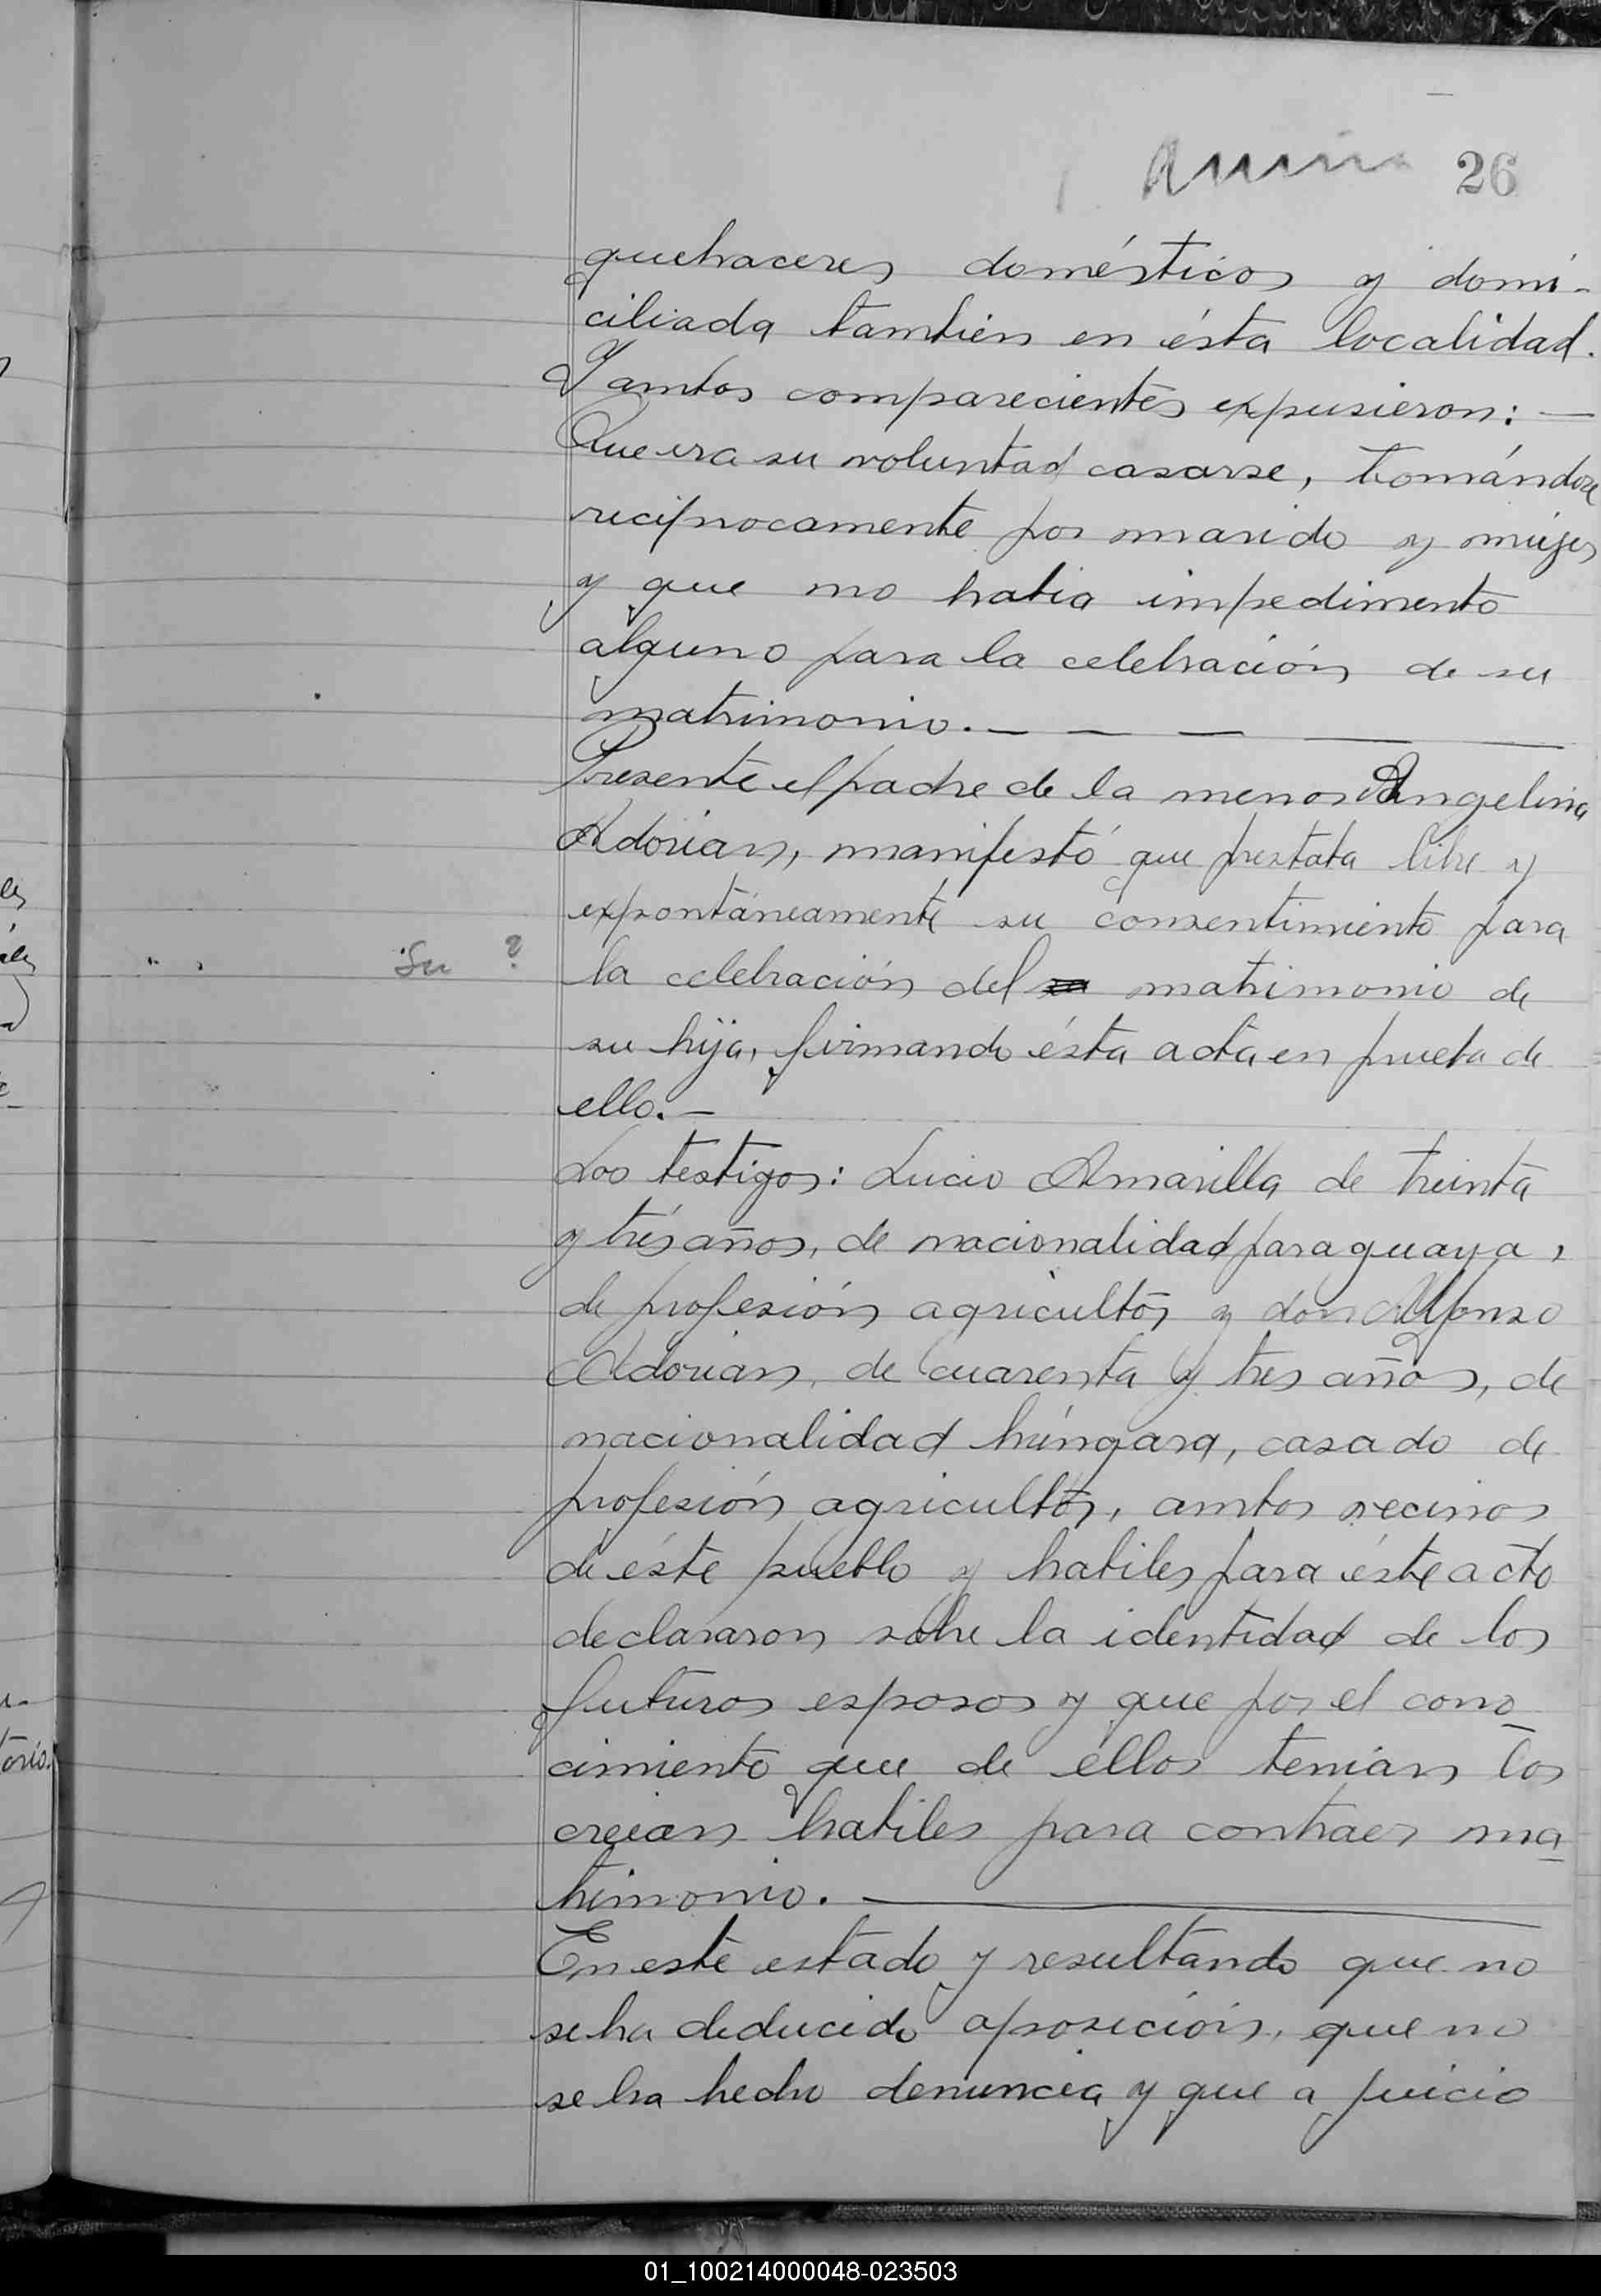 26
quehaceres domésticos y domi-
ciliada tambien en ésta localidad.
Y ambos comparecientes expusieron: —
Que era su voluntad casarse, tomándose
reciprocamente por marido y mujer
y que no habia impedimento
alguno para la celebración de su
matrimonio. — — — — —
Presente el padre de la menor Angelina
Adorian, manifestó que prestaba libre y
expontáneamente su consentimiento para
Su ?
la celebración del matrimonio de
su hija, firmando ésta acta en prueba de
ello. —
Los testigos: Lucio Amarilla de treinta
y trés años, de nacionalidad paraguaya,
de profesión agricultor y don Alfonso
Adorian, de cuarenta y tres años, de
nacionalidad húngara, casado de
profesión agricultor, ambos vecinos
de éste pueblo y habiles para éste acto
declararon sobre la identidad de los
futuros esposos y que por el cono
cimiento que de éllos tenian los
creian habiles para contraer ma
trimonio. —
En este estado y resultando que no
se ha deducido oposición, que no
se ha hecho denuncia y que a juicio
01_100214000048-023503